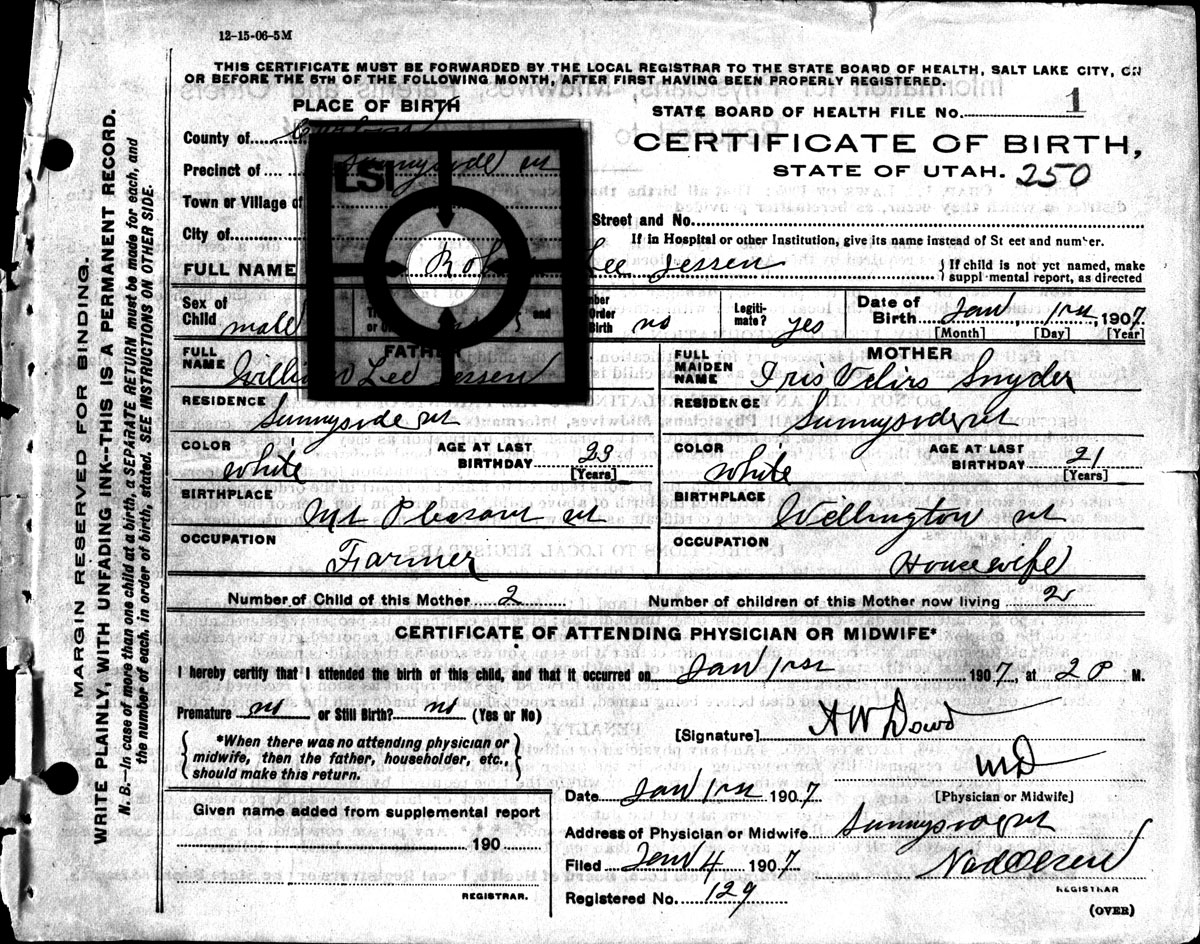 12-15-06-5M
THIS CERTIFICATE MUST BE FORWARDED BY THE LOCAL REGISTRAR TO THE STATE BOARD OF HEALTH, SALT LAKE CITY, ON
OR BEFORE THE 5TH OF THE FOLLOWING MONTH, AFTER FIRST HAVING BEEN PROPERLY REGISTERED.
PLACE OF BIRTH
STATE BOARD OF HEALTH FILE No. 1
County of Carbon
CERTIFICATE OF BIRTH,
STATE OF UTAH. 250
Precinct of Sunnyside ut
LSI
Town or Village of
Street and No.
City of
If in Hospital or other Institution, give its name instead of St eet and number.
FULL NAME Rob Lee Jessen { If child is not yet named, make
suppl mental report, as directed
Sex of Child male
and
mber
Order
Birth no
Legiti-
mate? yes
Date of
Birth Jan 1st, 1907.
[Month] [Day] [Year]
FATHER
FULL
NAME William Lee Jessen
MOTHER
FULL
MAIDEN
NAME Iris Snyder
RESIDENCE Sunnyside ut
RESIDENCE Sunnyside ut
COLOR white AGE AT LAST
BIRTHDAY 23
[Years]
COLOR white AGE AT LAST
BIRTHDAY 21
[Years]
BIRTHPLACE Mt Pleasant ut
BIRTHPLACE Wellington ut
OCCUPATION Farmer
OCCUPATION Housewife
Number of Child of this Mother 2 Number of children of this Mother now living 2
CERTIFICATE OF ATTENDING PHYSICIAN OR MIDWIFE*
I hereby certify that I attended the birth of this child, and that it occurred on Jan 1st 1907, at 2 P M.
Premature no or Still Birth? no (Yes or No)
[Signature] A W Dowd
MD
{ *When there was no attending physician or
midwife, then the father, householder, etc.,
should make this return. }
Date Jan 1st 1907
[Physician or Midwife]
Given name added from supplemental report
190
REGISTRAR.
Address of Physician or Midwife Sunnyside ut
Filed Jan 4 1907
REGISTRAR
Registered No. 129
(OVER)
MARGIN RESERVED FOR BINDING.
WRITE PLAINLY, WITH UNFADING INK--THIS IS A PERMANENT RECORD.
N. B.--In case of more than one child at a birth, a SEPARATE RETURN must be made for each, and
the number of each, in order of birth, stated. SEE INSTRUCTIONS ON OTHER SIDE.